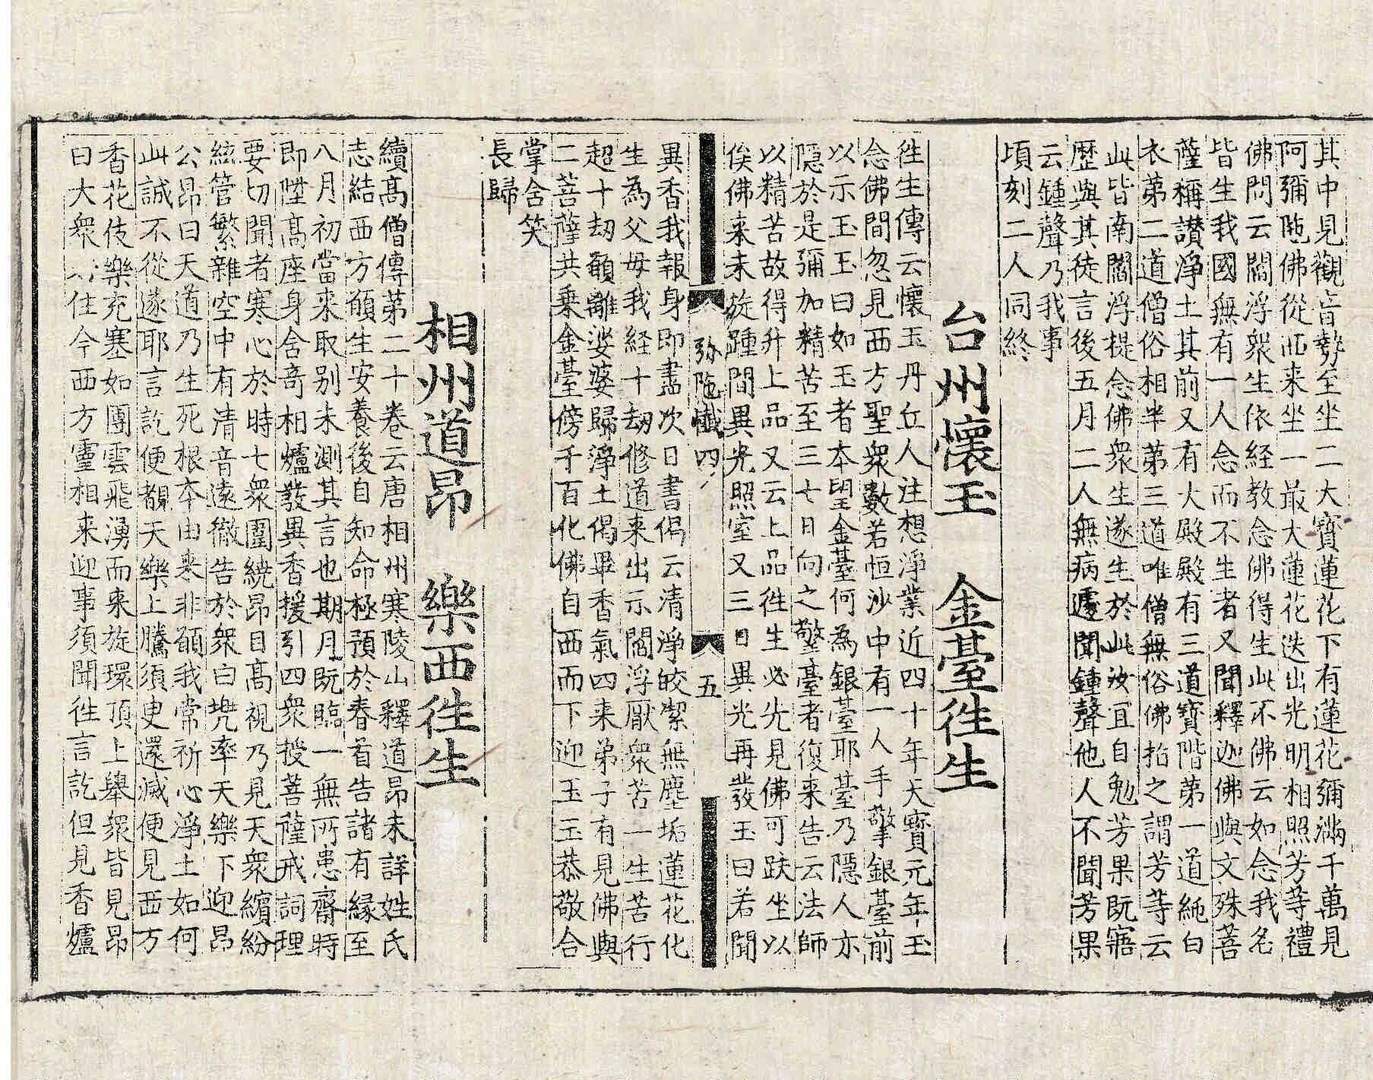 其中見觀音勢至坐二大寶蓮花下有蓮花彌滿千萬見
阿彌陁佛從西來坐一最大蓮花迭出光明相照芳等禮
佛問云閻浮衆生依經教念佛得生此不佛云如念我名
皆生我國無有一人念而不生者又聞釋迦佛與文殊菩
薩稱讃淨土其前又有大殿殿有三道寶階第一道純白
衣第二道僧俗相半第三道唯僧無俗佛指之謂芳等云
此皆南閻浮提念佛衆生遂生於此汝宜自勉芳果旣寤
歷與其徒言後五月二人無病遽聞鍾聲他人不聞芳果
云鍾聲乃我事
頃刻二人同終
台州懷玉　金臺徃生
徃生傳云懷玉丹丘人注想淨業近四十年天寶元年玉
念佛間忽見西方聖衆數若恒沙中有一人手擎銀臺前
以示玉玉曰如玉者本望金臺何為銀臺耶臺乃隱人亦
隱於是彌加精苦至三七日向之擎臺者復来告云法師
以精苦故得升上品又云上品徃生必先見佛可趺坐以
俟佛来未旋踵間異光照室又三日異光再發玉曰若聞
弥陁懺四　五
異香我報身即盡次日書偈云清淨皎潔無塵垢蓮花化
生為父母我経十劫修道来出示閻浮厭衆苦一生苦行
超十劫願離娑婆歸淨土偈畢香氣四来弟子有見佛與
二菩薩共乗金臺傍千百化佛自西而下迎玉玉恭敬合
掌含笑
長歸
相州道昂　樂西徃生
續髙僧傳第二十卷云唐相州寒陵山釋道昂未詳姓氏
志結西方願生安養後自知命極預於春首告諸有縁至
八月初當来取别未測其言也期月旣臨一無所患齋時
即陞髙座身含竒相爐發異香援引四衆授菩薩戒詞理
要切聞者寒心於時七衆圍繞昂目髙視乃見天衆繽紛
絃管繁雜空中有清音遠徹告於衆曰兠率天樂下迎昂
公昂曰天道乃生死根夲由来非願我常祈心淨土如何
此誠不從遂耶言訖便覩天樂上騰須臾還滅便見西方
香花伎樂充塞如團雲飛湧而来旋環頂上舉衆皆見昂
曰大衆住今西方靈相来迎事須聞徃言訖但見香爐